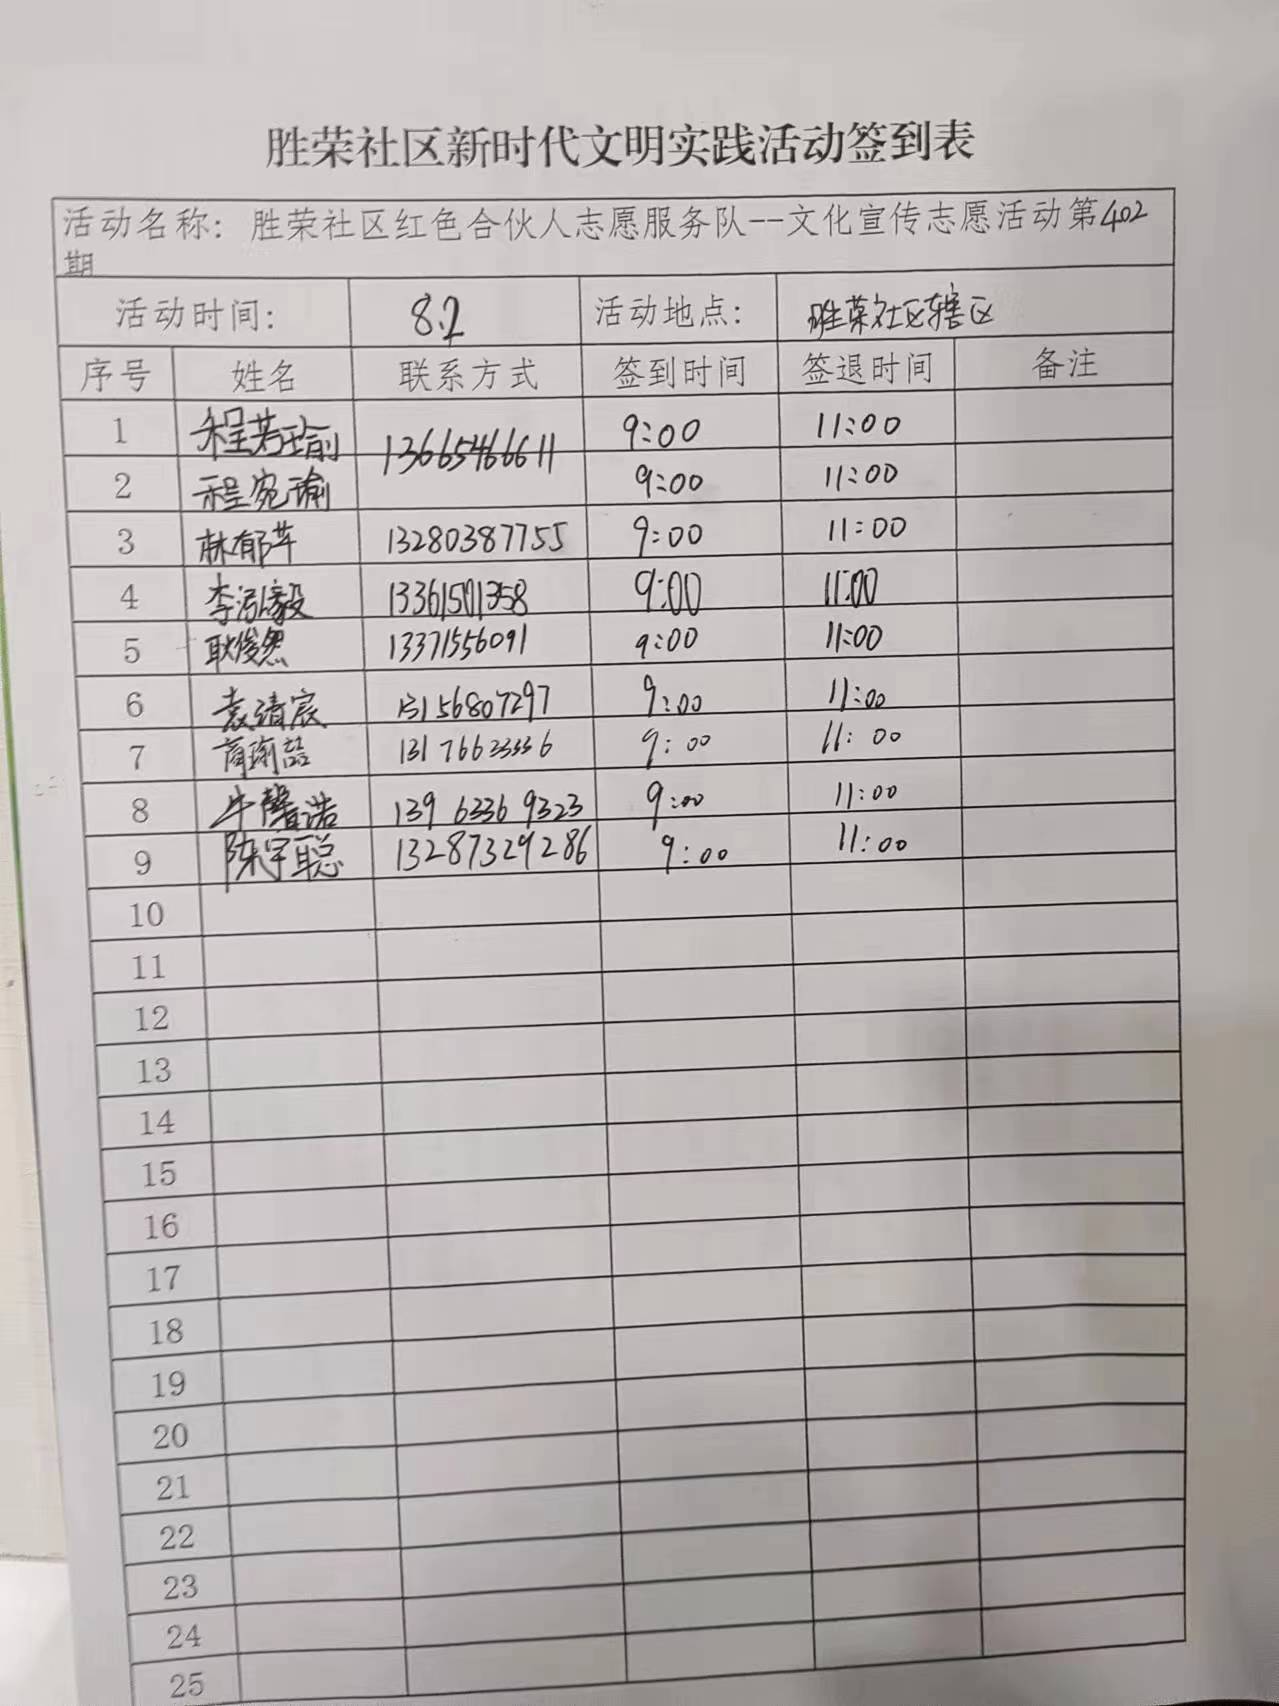 胜荣社区新时代文明实践活动签到表
活动名称：胜荣社区红色合伙人志愿服务队--文化宣传志愿活动第402
期
活动时间： 8.2 活动地点： 胜荣社区辖区
序号 姓名 联系方式 签到时间 签退时间 备注
1 程若瑜 13665466611 9:00 11:00
2 程宛瑜 9:00 11:00
3 林郁芊 13280387755 9:00 11:00
4 李泓毅 13361501358 9:00 11:00
5 耿俊然 13371556091 9:00 11:00
6 袁清宸 13156807297 9:00 11:00
7 商瑜喆 13176623336 9:00 11:00
8 牛馨浩 139 6336 9323 9:00 11:00
9 陈宇聪 13287329286 9:00 11:00
10
11
12
13
14
15
16
17
18
19
20
21
22
23
24
25